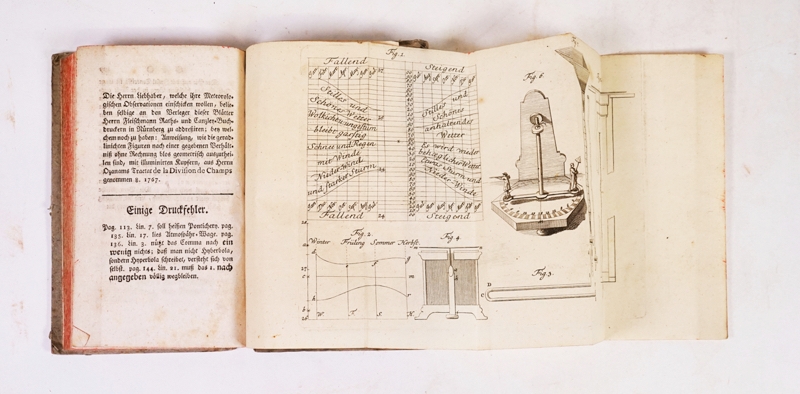 Die Herrn Liebhaber, welche ihre Meteorolo-
gischen Observationen einschicken wollen, belie-
ben selbige an den Verleger dieser Blätter
Herrn Fleischmann Raths- und Canzley-Buch-
druckern in Nürnberg zu addreßiren; bey wel-
chem noch zu haben: Anweisung, wie die gerad-
linichten Figuren nach einer gegebenen Verhält-
niß ohne Rechnung blos geometrisch auszuthei-
len sind, mit illuminirten Kupfern, aus Herrn
Ozanams Tractat de la Division de Champs
genommen 8. 1767.
Einige Druckfehler.
Pag. 113. lin. 7. soll heißen Pontichery. pag.
135. lin. 17. lies Atmosphär-Wage. pag.
136. lin. 3. nützt das Comma nach ein
wenig nichts; daß man nicht Hyberbola,
sondern Hyperbola schreibt, versteht sich von
selbst. pag. 144. lin. 21. muß das 1. nach
angegeben völlig wegbleiben.
Fig. 1.
Fallend
Stilles und
Schönes Wetter
bleibt garstig
Schnee und Regen
mit Winde
Nieder Wind
und starker Sturm
Fallend
Steigend
Stilles und
Schönes
anhaltendes
Wetter
Es wird wieder
behägliches Wetter
Sturm und
Nieder Winde
Steigend
Fig. 2.
Winter Früling Sommer Herbst
W. T. S. H.
Fig. 4
Fig. 6.
Fig. 3.
D
C